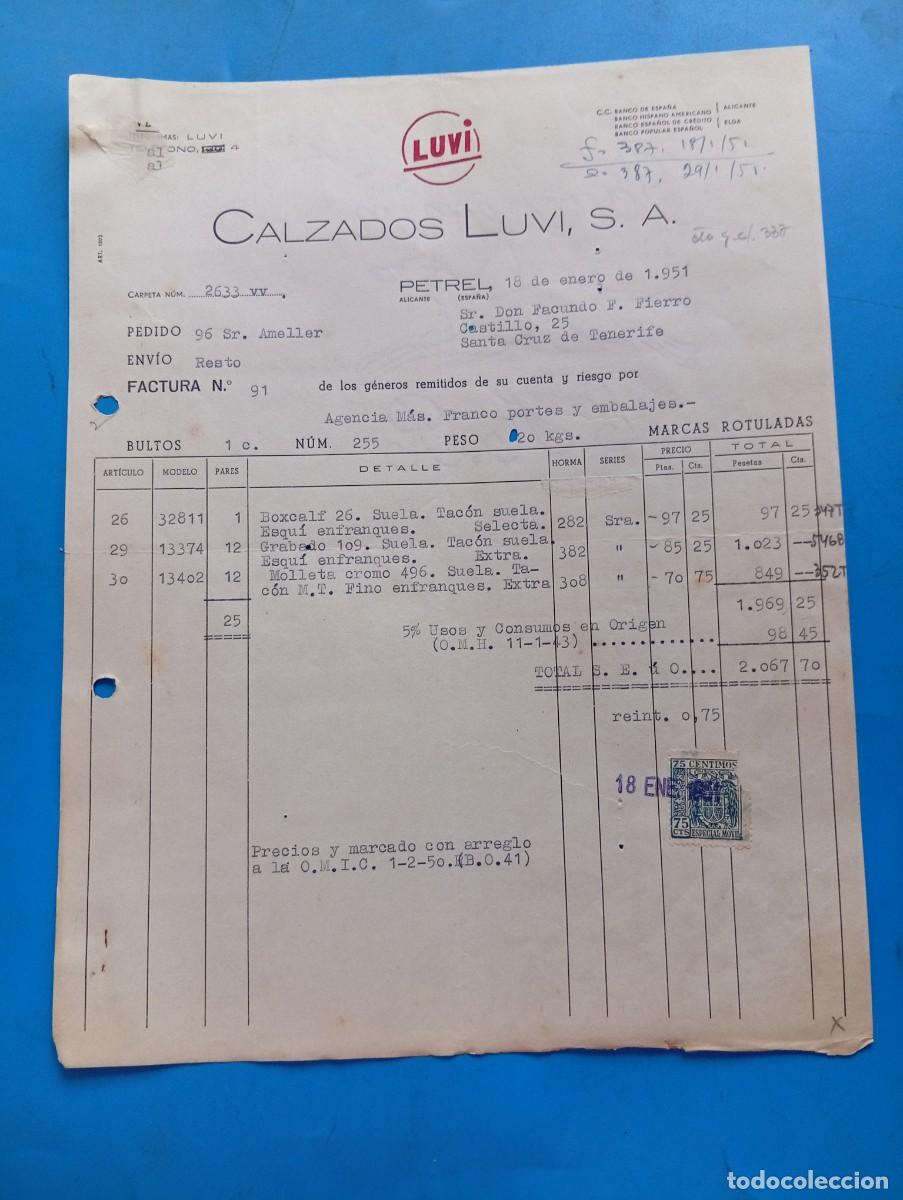 MAS: LUVI
ONO, 4
LUVi
C.C. BANCO DE ESPAÑA
BANCO HISPANO AMERICANO
ALICANTE
BANCO ESPAÑOL DE CRÉDITO
BANCO POPULAR ESPAÑOL
ELDA
f. 387, 18/1/51.
387, 29/1/51.
CALZADOS LUVI, S. A.
ART. 1003
CARPETA NÚM. 2633 vv
PETREL, 18 de enero de 1.951
ALICANTE (ESPAÑA)
Sr. Don Facundo F. Fierro
PEDIDO 96 Sr. Ameller
Castillo, 25
Santa Cruz de Tenerife
ENVÍO Resto
FACTURA N.º 91 de los géneros remitidos de su cuenta y riesgo por
Agencia Más. Franco portes y embalajes.-
BULTOS 1 c. NÚM. 255 PESO 20 kgs. MARCAS ROTULADAS
ARTÍCULO MODELO PARES DETALLE HORMA SERIES PRECIO TOTAL
Ptas. Cts. Pesetas Cts.
26 32811 1 Boxcalf 26. Suela. Tacón suela. 282 Sra. -97 25 97 25
Esquí enfranques. Selecta.
29 13374 12 Grabado 109. Suela. Tacón suela. 382 " -85 25 1.023 --
Esquí enfranques. Extra.
30 13402 12 Molleta cromo 496. Suela. Ta- 308 " -70 75 849 --
cón M.T. Fino enfranques. Extra
25 1.969 25
5% Usos y Consumos en Origen 98 45
(O.M.H. 11-1-43)
TOTAL S. E. ú O.... 2.067 70
reint. 0,75
18 ENE
75 CENTIMOS
75 CTS ESPECIAL MOVIL
Precios y marcado con arreglo
a la O.M.I.C. 1-2-50.(B.O.41)
X
todocoleccion